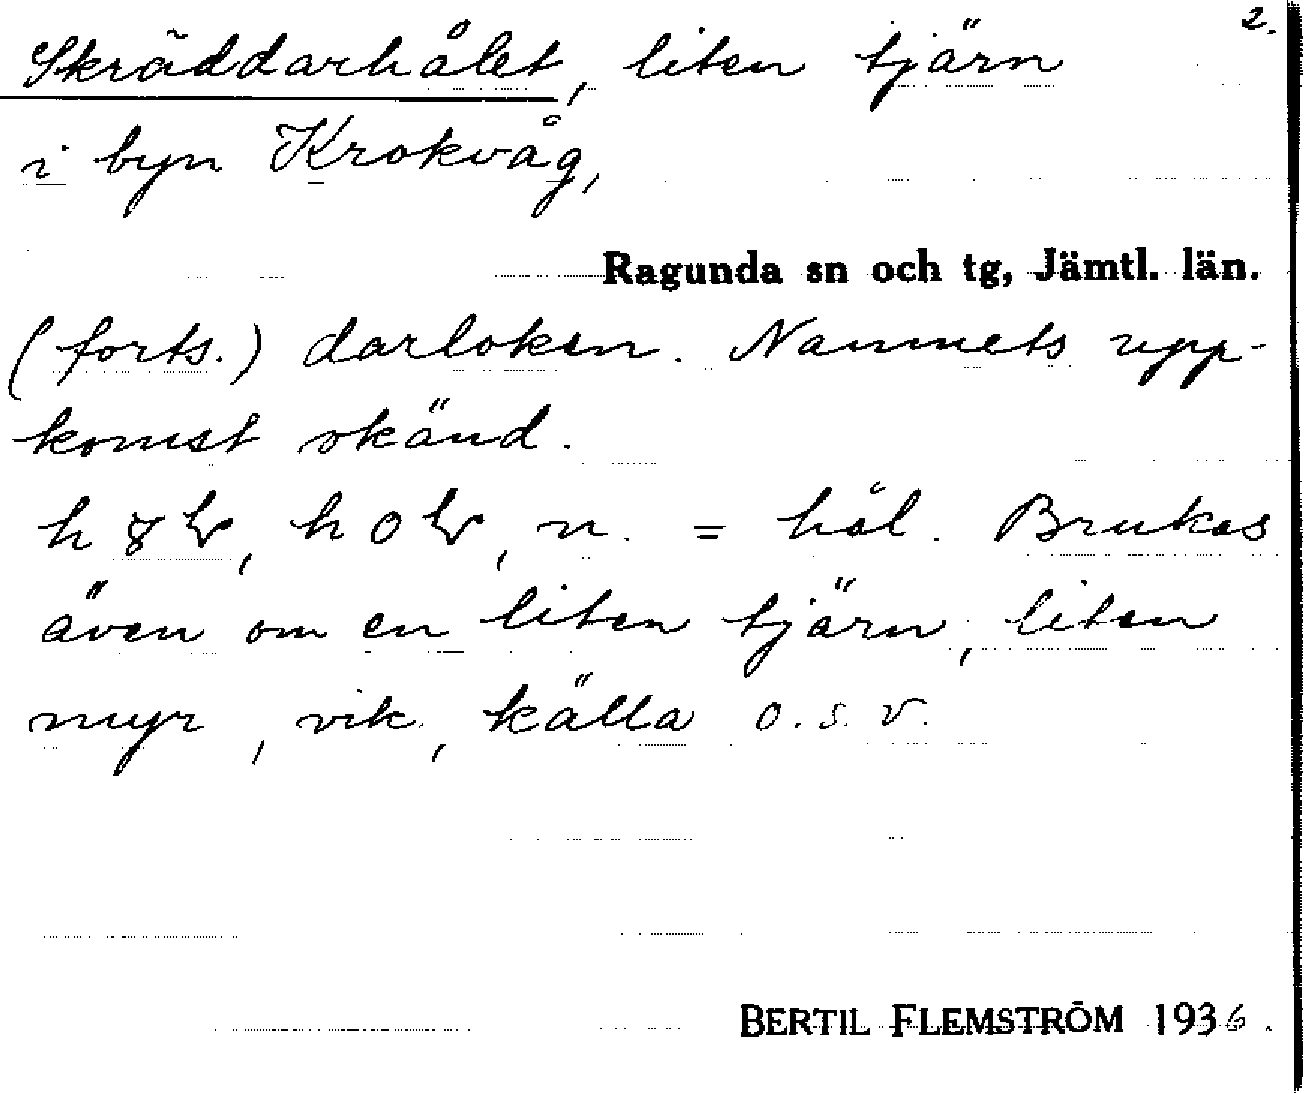 2.
Skräddarhålet, liten tjärn
i byn Krokvåg,
Ragunda sn och tg, Jämtl. län.
(forts.) darloken. Namnets upp-
komst okänd.
n. = hål. Brukas
även om en liten tjärn, liten
myr, vik, källa o.s.v.
BERTIL FLEMSTRÖM 1936.